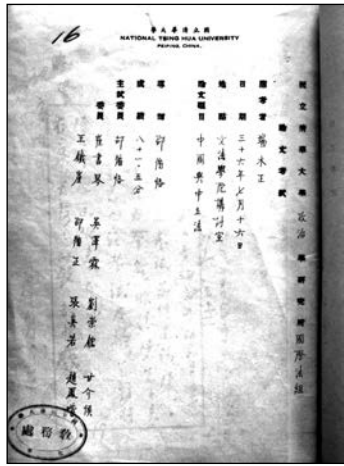 16
學大華清立國
NATIONAL TSING HUA UNIVERSITY
PEIPING, CHINA.
國立清華大學 政治 學研究所 國際法組
論文考試
應考者 端木正
日期 三十六年七月十六日
地點 文法學院講討室
論文題目 中國與中立法
導師 邵循恪
成績 八十一·五分
主試委員 邵循恪
委員 崔書琴 吳澤霖 劉崇鋐 甘介侯
王鐵崖 邵循正 張奚若 趙鳳喈
處務教